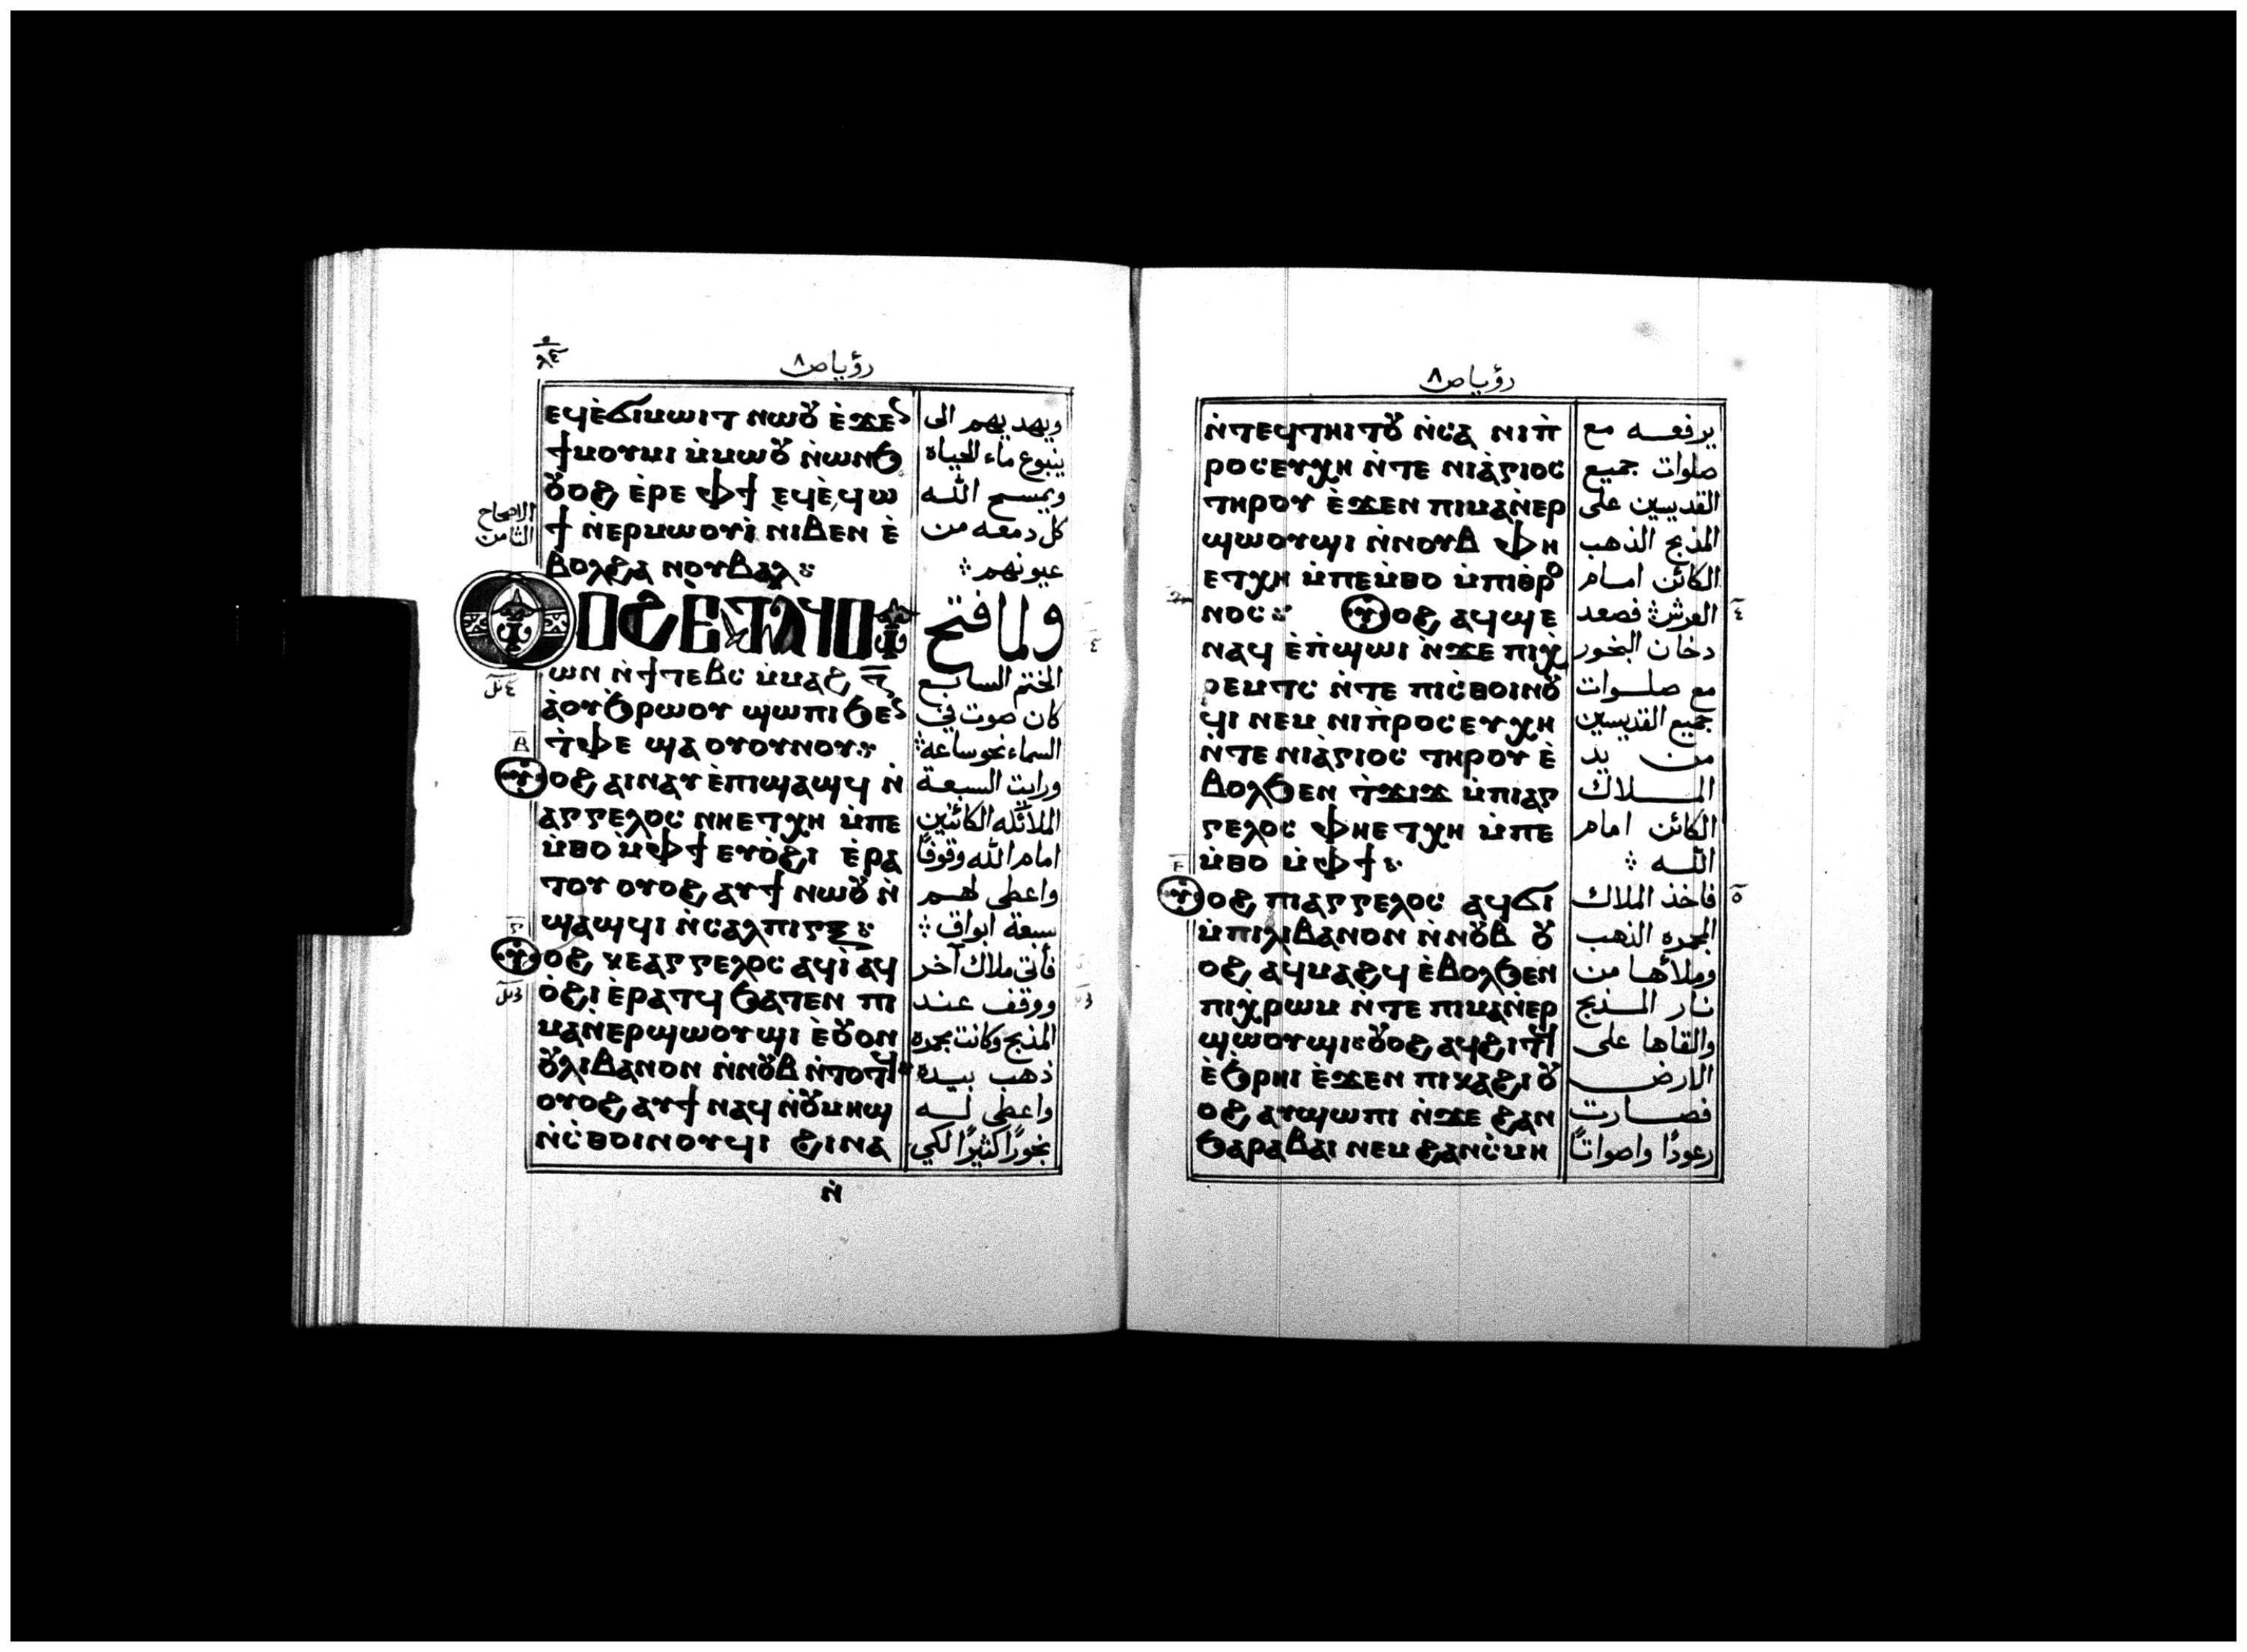 رؤيا ص ٨
ⲉϥⲉ̀ϭⲓⲙⲱⲓⲧ ⲛⲱȣ ⲉ̀ϫⲉⲛ
ϯⲙⲟⲩⲙⲓ ⲙ̀ⲙⲱȣ ⲛ̀ⲱⲛϧ
ȣⲟϩ ⲉ̀ⲣⲉ ⲫϯ ⲉϥⲉ̀ϥⲱ
ϯ ⲛ̀ⲉⲣⲙⲱⲟⲩⲓ̀ ⲛⲓⲃⲉⲛ ⲉ̀
ⲃⲟⲗϩⲁ ⲛⲟⲩⲃⲁⲗ
ⲟⲟϩ ⲉ̀ⲧⲁϥⲟⲩ
ⲱⲛ ⲛ̀ϯⲧⲉⲃⲥ ⲙ̀ⲙⲁϩ ⲍ̅
ⲁ̀ⲟⲩϧⲣⲱⲟⲩ ϣⲱⲡⲓ ϧⲉⲛ
ⲧ̀ⲫⲉ ϣⲁ ⲟⲩⲟⲩⲛⲟⲩ
ⲟⲩⲟϩ ⲁⲓⲛⲁⲩ ⲉ̀ⲡⲓϣⲁϣϥ ⲛ̀
ⲁⲅⲅⲉⲗⲟⲥ ⲛⲏⲉⲧⲭⲏ ⲙ̀ⲡⲉ
ⲙ̀ⲑⲟ ⲙ̀ⲫϯ ⲉⲩⲟ̀ϩⲓ ⲉ̀ⲣⲁ
ⲧⲟⲩ ⲟⲩⲟϩ ⲁⲩϯ ⲛⲱȣ ⲛ̀
ϣⲁϣϥⲓ ⲛ̀ⲥⲁⲗⲡⲓⲅⲝ
ⲟⲩⲟϩ ⲕⲉⲁⲅⲅⲉⲗⲟⲥ ⲁϥⲓ̀ ⲁϥ
ⲟ̀ϩⲓ ⲉ̀ⲣⲁⲧϥ ϧⲁⲧⲉⲛ ⲡⲓ
ⲙⲁⲛⲉⲣϣⲱⲟⲩϣⲓ ⲉ̀ȣⲟⲛ
ȣⲗⲓⲃⲁⲛⲟⲛ ⲛ̀ⲛȣⲃ ⲛ̀ⲧⲟⲧϥ
ⲟⲩⲟϩ ⲁⲩϯ ⲛⲁϥ ⲛ̀ȣⲙⲏϣ
ⲛ̀ⲥ̀ⲑⲟⲓⲛⲟⲩϥⲓ ϩⲓⲛⲁ
ⲛ̀
الاصحاح
الثامن
ويهديهم الى
ينبوع ماء الحياة
ويمسح الله
كل دمعه من
عيونهم
ولما فتح
الختم السابع
كان صوت في
السماء نحو ساعة
ورايت السبعة
الملائكه الكائنين
امام الله وقوفًا
واعطى لهم
سبعة ابواق
فأتى ملاك آخر
ووقف عند
المذبح وكانت مجمرة
ذهب بيده
واعطى له
بخورًا كثيرًا لكي
رؤيا ص ٨
ⲛ̀ⲧⲉϥⲧⲏⲓⲧȣ ⲛ̀ⲥⲁ ⲛⲓⲡ̀
ⲣⲟⲥⲉⲩⲭⲏ ⲛ̀ⲧⲉ ⲛⲓⲁ̀ⲅⲓⲟⲥ
ⲧⲏⲣⲟⲩ ⲉ̀ϫⲉⲛ ⲡⲓⲙⲁⲛ̀ⲉⲣ
ϣⲱⲟⲩϣⲓ ⲛ̀ⲛⲟⲩⲃ ⲫⲏ
ⲉⲧⲭⲏ ⲙ̀ⲡⲉⲙ̀ⲑⲟ ⲙ̀ⲡⲓⲑⲣⲟ
ⲛⲟⲥ ⲟⲩⲟϩ ⲁϥϣⲉ
ⲛⲁϥ ⲉ̀ⲡ̀ϣⲱⲓ ⲛ̀ϫⲉ ⲡⲓⲭ̀
ⲣⲉⲙⲧⲥ ⲛ̀ⲧⲉ ⲡⲓⲥ̀ⲑⲟⲓⲛȣ
ϥⲓ ⲛⲉⲙ ⲛⲓⲡ̀ⲣⲟⲥⲉⲩⲭⲏ
ⲛ̀ⲧⲉ ⲛⲓⲁ̀ⲅⲓⲟⲥ ⲧⲏⲣⲟⲩ ⲉ̀
ⲃⲟⲗϧⲉⲛ ⲧ̀ϫⲓϫ ⲙ̀ⲡⲓⲁⲅ
ⲅⲉⲗⲟⲥ ⲫⲏⲉⲧⲭⲏ ⲙ̀ⲡⲉ
ⲙ̀ⲑⲟ ⲙ̀ⲫϯ
ⲟⲩⲟϩ ⲡⲓⲁⲅⲅⲉⲗⲟⲥ ⲁϥϭⲓ
ⲙ̀ⲡⲓⲗⲓⲃⲁⲛⲟⲛ ⲛ̀ⲛȣⲃ ȣ
ⲟϩ ⲁϥⲙⲁϩϥ ⲉ̀ⲃⲟⲗϧⲉⲛ
ⲡⲓⲭ̀ⲣⲱⲙ ⲛ̀ⲧⲉ ⲡⲓⲙⲁⲛ̀ⲉⲣ
ϣⲱⲟⲩϣⲓ ȣⲟϩ ⲁϥϩⲓⲧϥ
ⲉ̀ϧⲣⲏⲓ ⲉ̀ϫⲉⲛ ⲡⲓⲕⲁϩⲓ ȣ
ⲟϩ ⲁⲩϣⲱⲡⲓ ⲛ̀ϫⲉ ϩⲁⲛ
ϧⲁⲣⲁⲃⲁⲓ ⲛⲉⲙ ϩⲁⲛⲥ̀ⲙⲏ
يرفعه مع
صلوات جميع
القديسين على
المذبح الذهب
الكائن امام
العرش فصعد
دخان البخور
مع صلوات
جميع القديسين
من يد
الملاك
الكائن امام
الله
فاخذ الملاك
المجمره الذهب
وملأها من
نار المذبح
والقاها على
الارض
فصارت
رعودًا واصواتًا
٤
٥